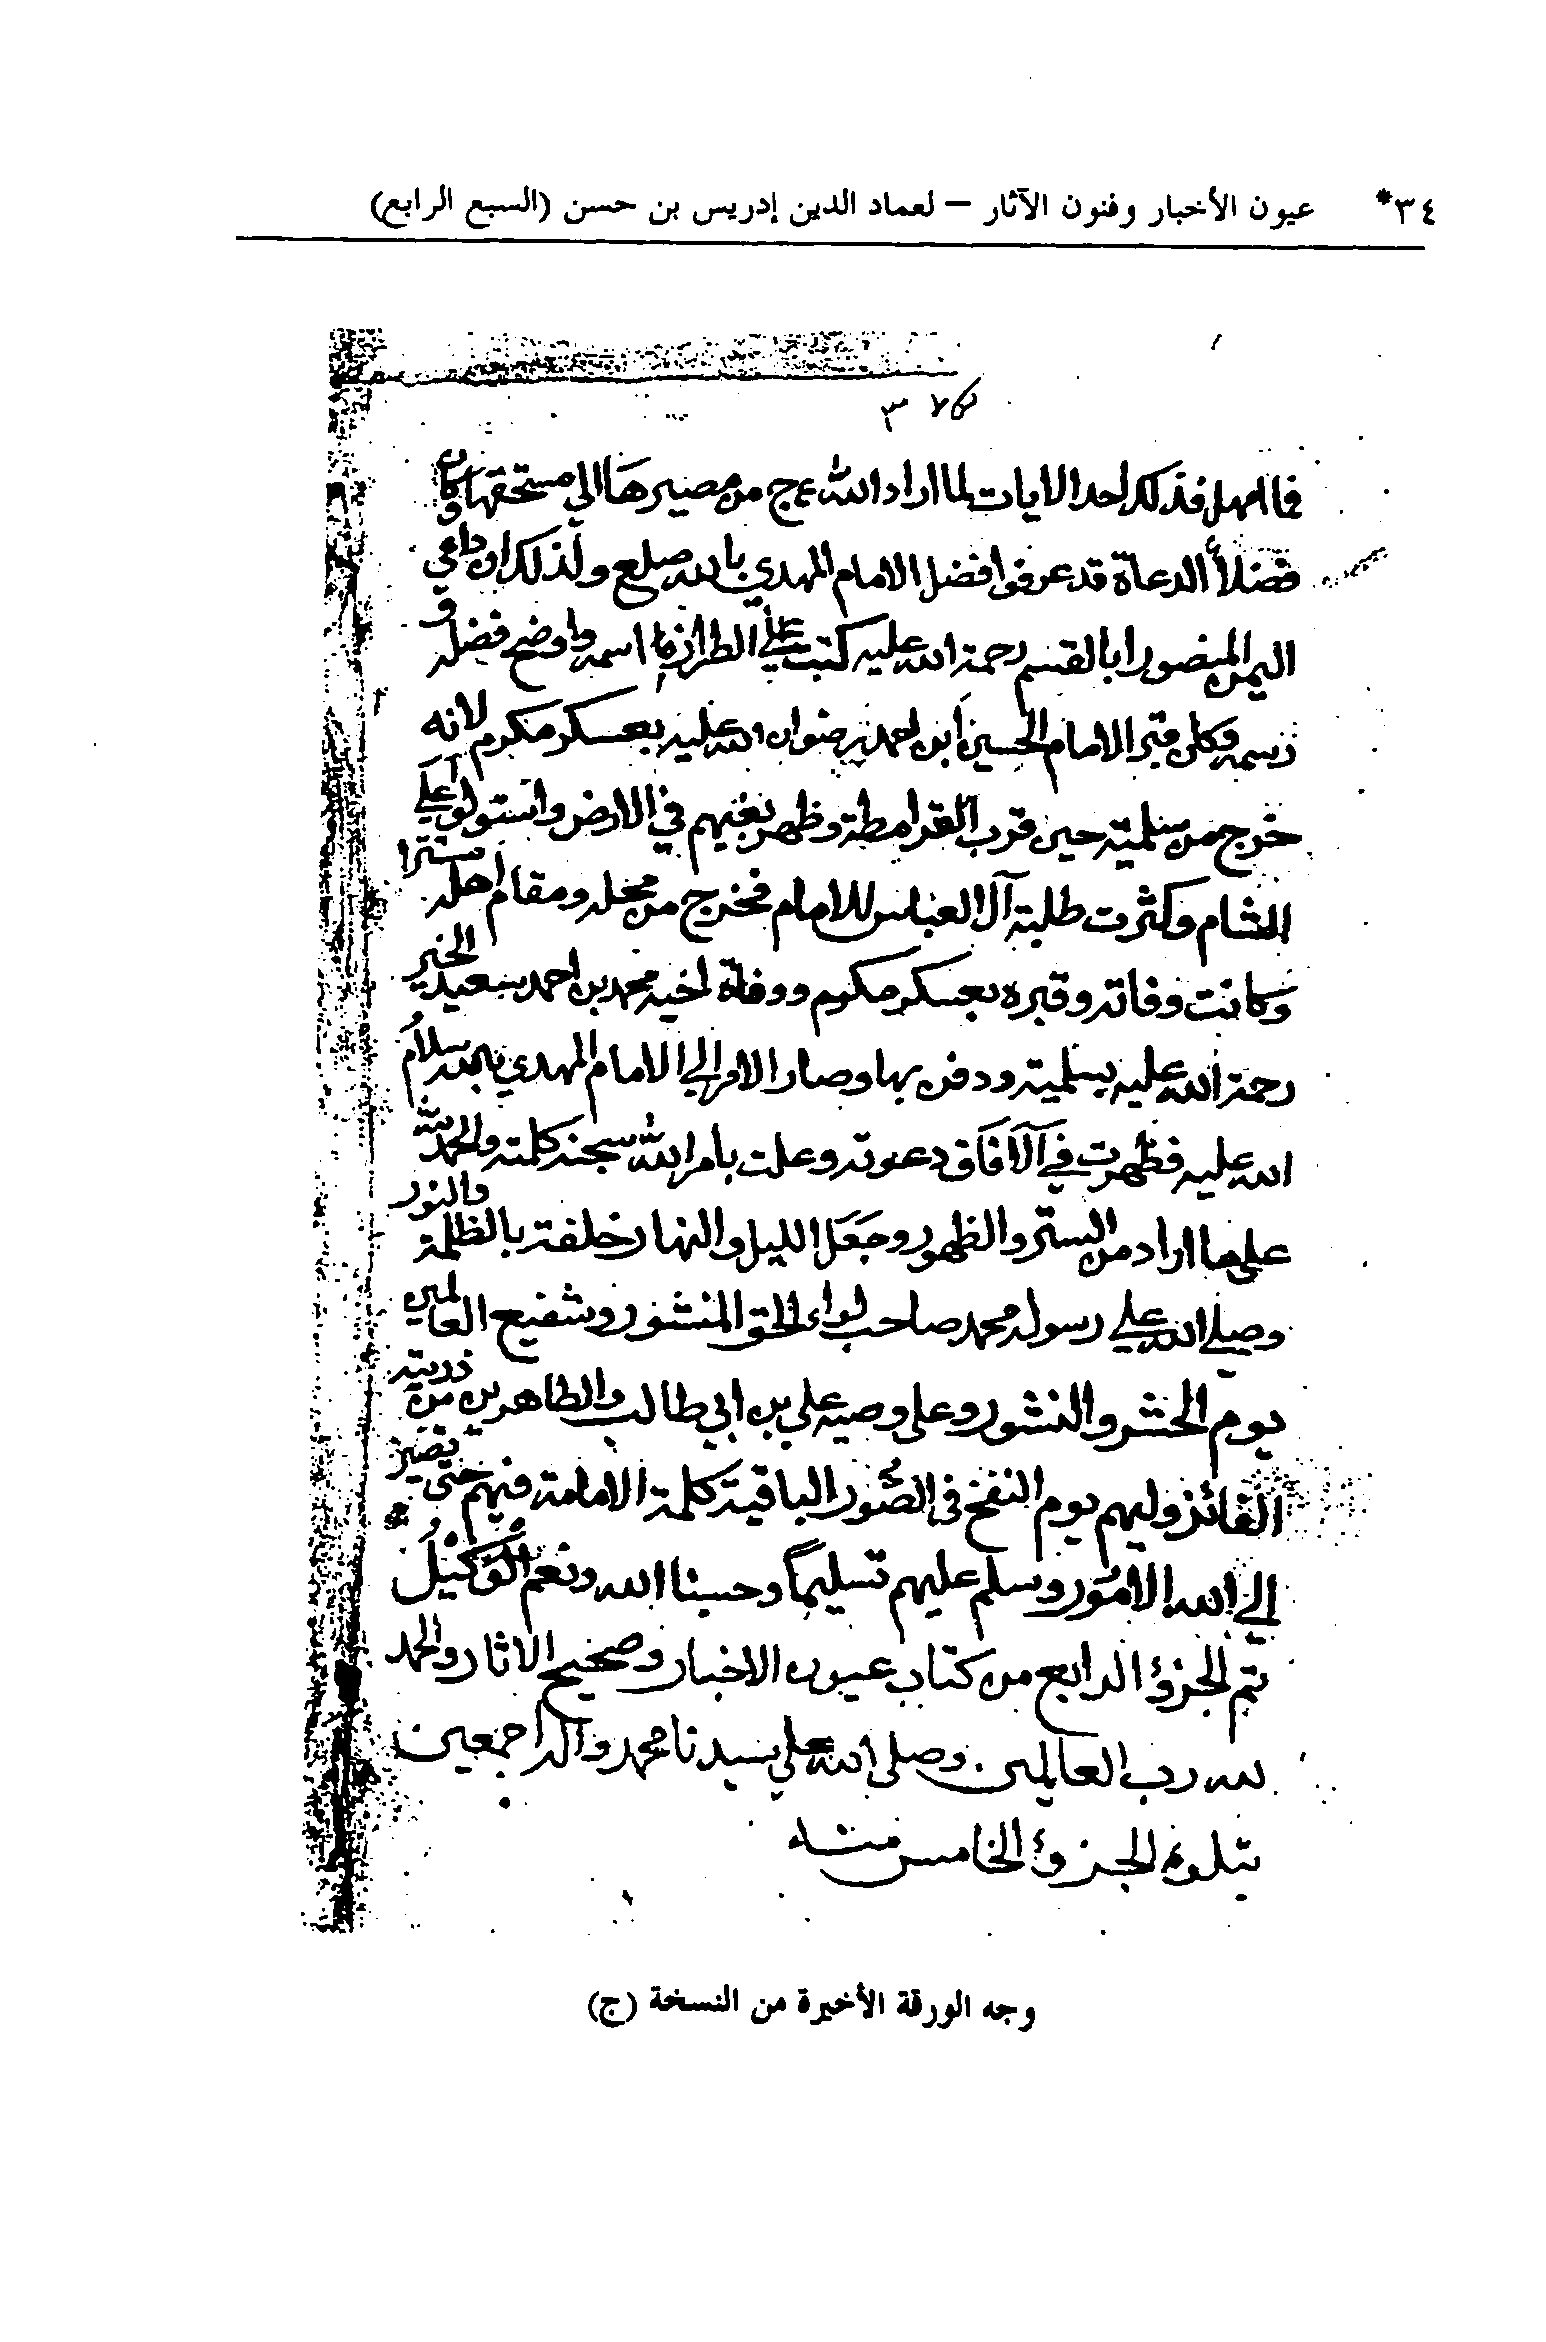 ٣٤* عيون الأخبار وفنون الآثار – لعماد الدين إدريس بن حسن (السبع الرابع)
فما امهل فذلك احد الايات لما اراد الله عج من مصيرها الي مستحقها وكان
فضلاء الدعاة قد عرفوا فضل الامام المهدي بالله صلع ولذلك ان داعي
اليمن المنصور ابا القسم رحمة الله عليه كتب علي الطراز اسمه واوضح فضله و
رسمه وكان قبر الامام الحسين ابن احمد رضوان الله عليه بعسكر مكرم لانه
خرج من سلمية حين قرب القرامطة وظهر بغيهم في الارض واستولوا علي
الشام وكثرت طلبة آل العباس للامام فخرج من محله ومقام اهله مستترا
وكانت وفاته وقبره بعسكر مكرم ووفاة اخيه محمد بن احمد سعيد الخير
رحمة الله عليه بسلمية ودفن بها وصار الامر الي الامام المهدي بالله سلام
الله عليه فظهرت في الآفاق دعوته وعلت بامر الله سبحنه كلمته والحمد لله
علي ما اراد من الستر والظهور وجعل الليل والنهار خلفة بالظلمة والنور
وصلي الله علي رسوله محمد صاحب لواء الحق المنشور وشفيع العالمين
يوم الحشر والنشور وعلى وصيه علي بن ابي طالب والطاهرين من ذريته
الفائز وليهم يوم النفخ في الصور الباقية كلمة الامامة فيهم حتى تصير
إلي الله الامور وسلم عليهم تسليما وحسبنا الله ونعم الوكيل
تم الجزؤ الرابع من كتاب عيون الاخبار وصحيح الاثار والحمد
لله رب العالمين وصلى الله علي سيدنا محمد واله اجمعين
يتلوه الجزؤ الخامس منه
وجه الورقة الأخيرة من النسخة (ج)